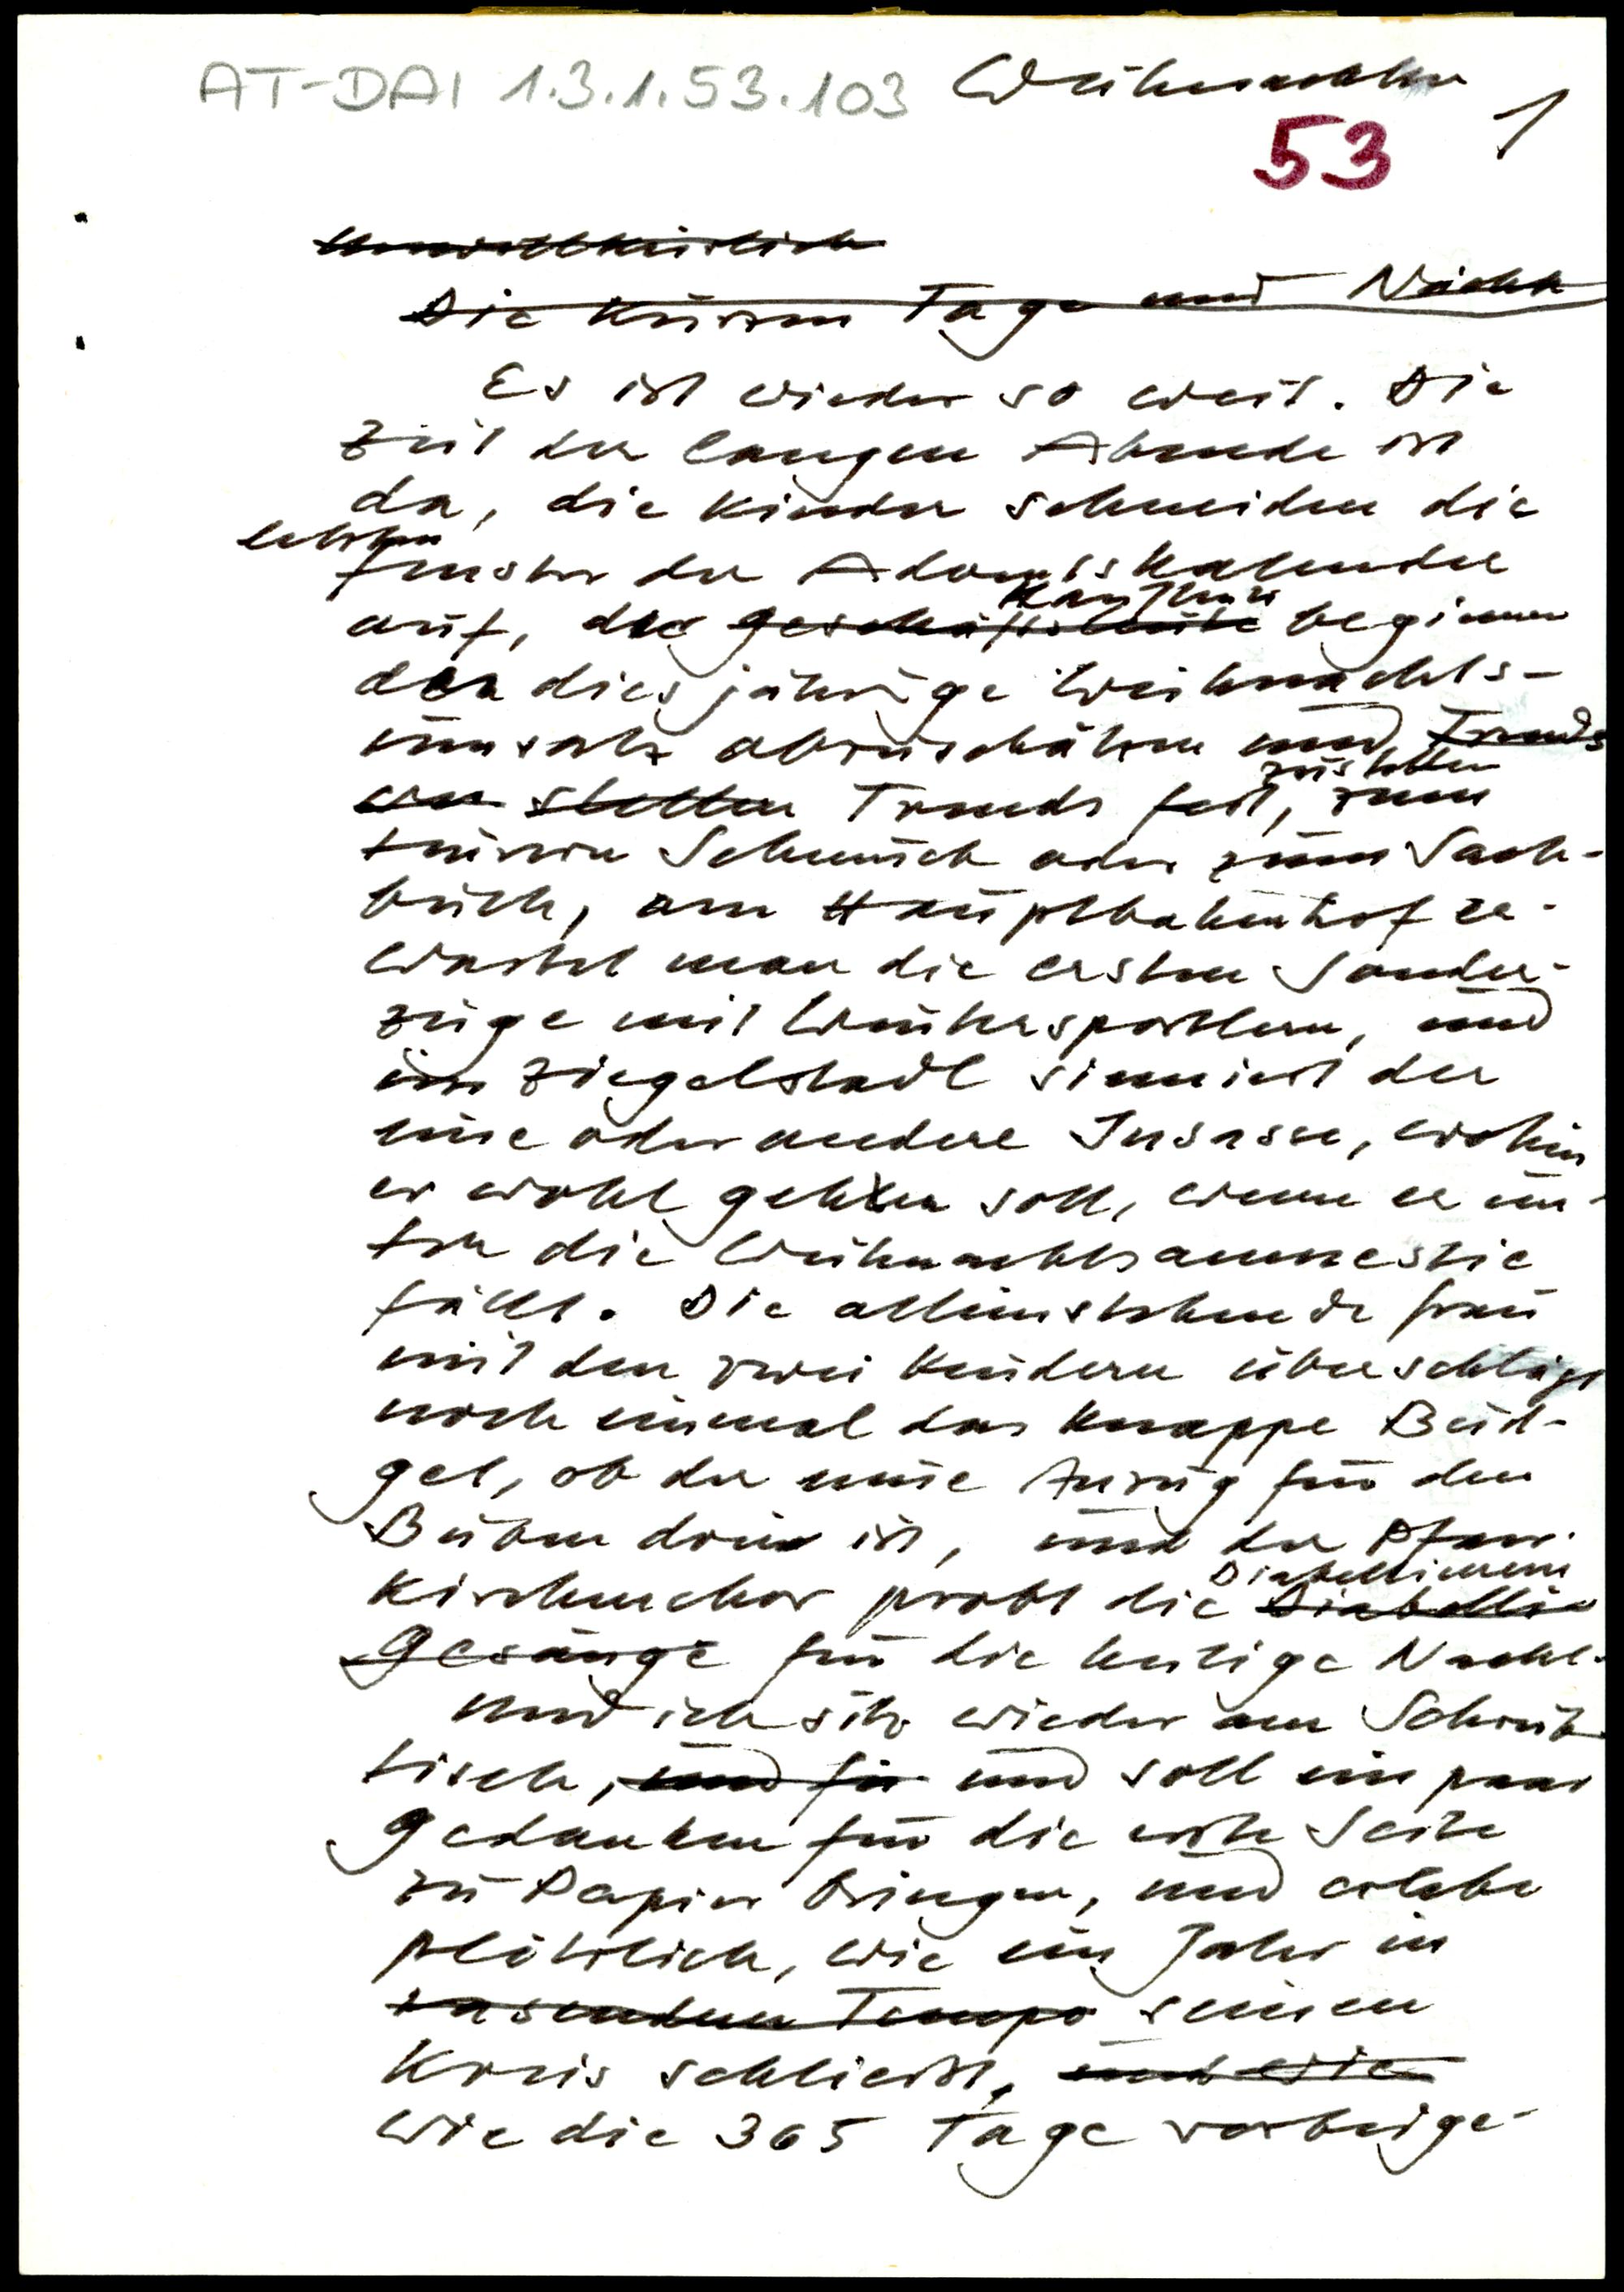 AT-DAI 1.3.1.53.103 Weihnachten
1
53
Unwillkürlich
Die kurzen Tage und Nächte
Es ist wieder so weit. Die
Zeit der langen Abende ist
da, die Kinder schneiden die
letzten
Fenster der Adventskalender
Kaufleute
auf, die Geschäftsleute beginnen
den diesjährige Weihnachts-
umsatz abzuschätzen und Trends
zustellen
stellen Trends fest, zum
teuren Schmuck oder zum Sach-
buch, am Hauptbahnhof er-
wartet man die ersten Sonder-
züge mit Wintersportlern, und
im Ziegelstadl sinniert der
eine oder andere Insasse, wohin
er wohl gehen soll, wenn er un-
ter die Weihnachtsamnestie
fällt. Die alleinstehende Frau
mit den zwei Kindern überschlägt
noch einmal das knappe Bud-
get, ob der neue Anzug für den
Buben drin ist, und der Pfarr-
Diabellimesse
kirchenchor probt die Diabelli-
Gesänge für die heilige Nacht.
Und ich sitz wieder am Schreib-
tisch, und für und soll ein paar
Gedanken für die erste Seite
zu Papier bringen, und erlebe
plötzlich, wie ein Jahr in
rasendem Tempo seinen
Kreis schließt, und wie
wie die 365 Tage vorbeige-